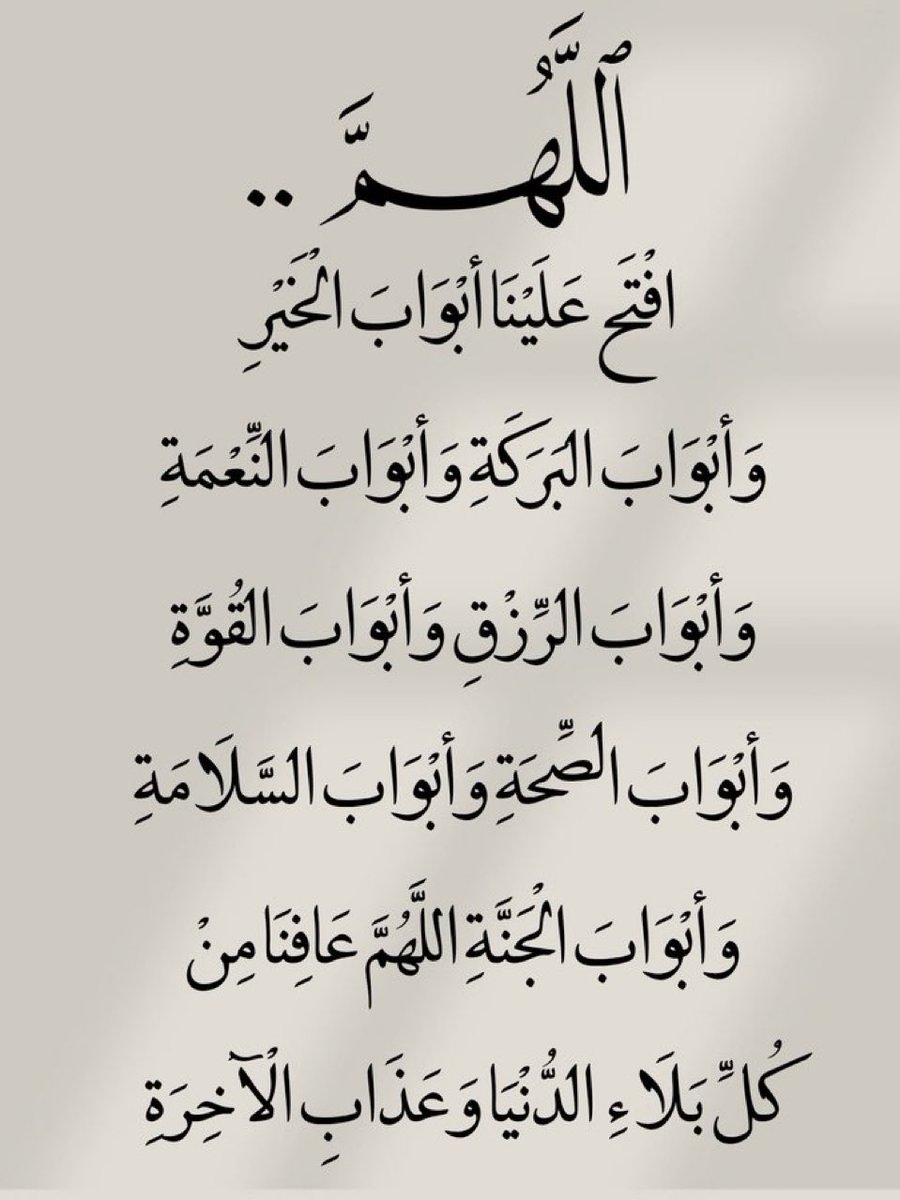 ٱللَّهُمَّ ..
افْتَح عَلَيْنَا أَبْوَابَ الْخَيْرِ
وَأَبْوَابَ البَرَكَةِ وَأَبْوَابَ النِّعْمَةِ
وَأَبْوَابَ الرِّزْقِ وَأَبْوَابَ القُوَّةِ
وَأَبْوَابَ الصِّحَةِ وَأَبْوَابَ السَّلَامَةِ
وَأَبْوَابَ الْجَنَّةِ اللَّهُمَّ عَافِنَا مِنْ
كُلِّ بَلَاءِ الدُّنْيَا وَعَذَابِ الْآخِرَةِ